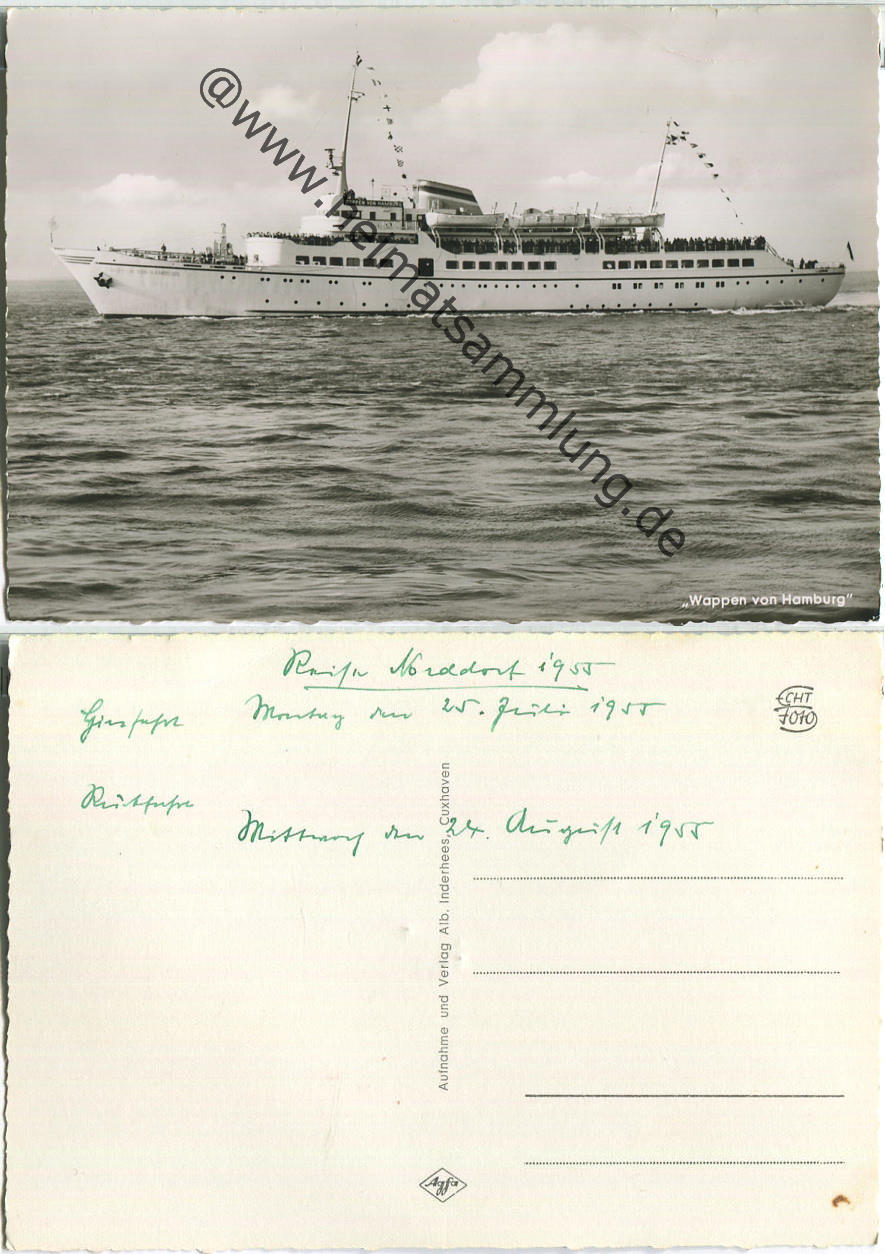 @www.heimatsammlung.de
WAPPEN VON HAMBURG
„Wappen von Hamburg"
Reise Norddorf 1955
Hinfahrt Montag den 25. Juli 1955
ECHT
7010
Rückfahrt
Mittwoch den 24. August 1955
Aufnahme und Verlag Alb. Inderhees, Cuxhaven
Agfa